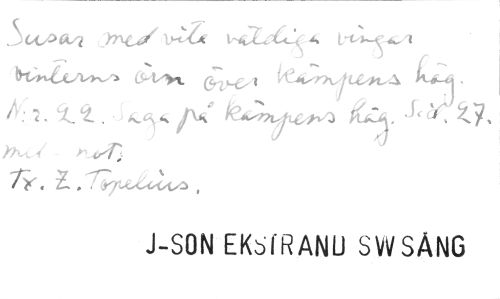 Susar med vita väldiga vingar
vinterns örn över kämpens hög.
N:r. 22. Saga på kämpens hög. Sid. 27.
med not.
Tx. Z. Topelius.
J-SON EKSTRAND SW SÅNG